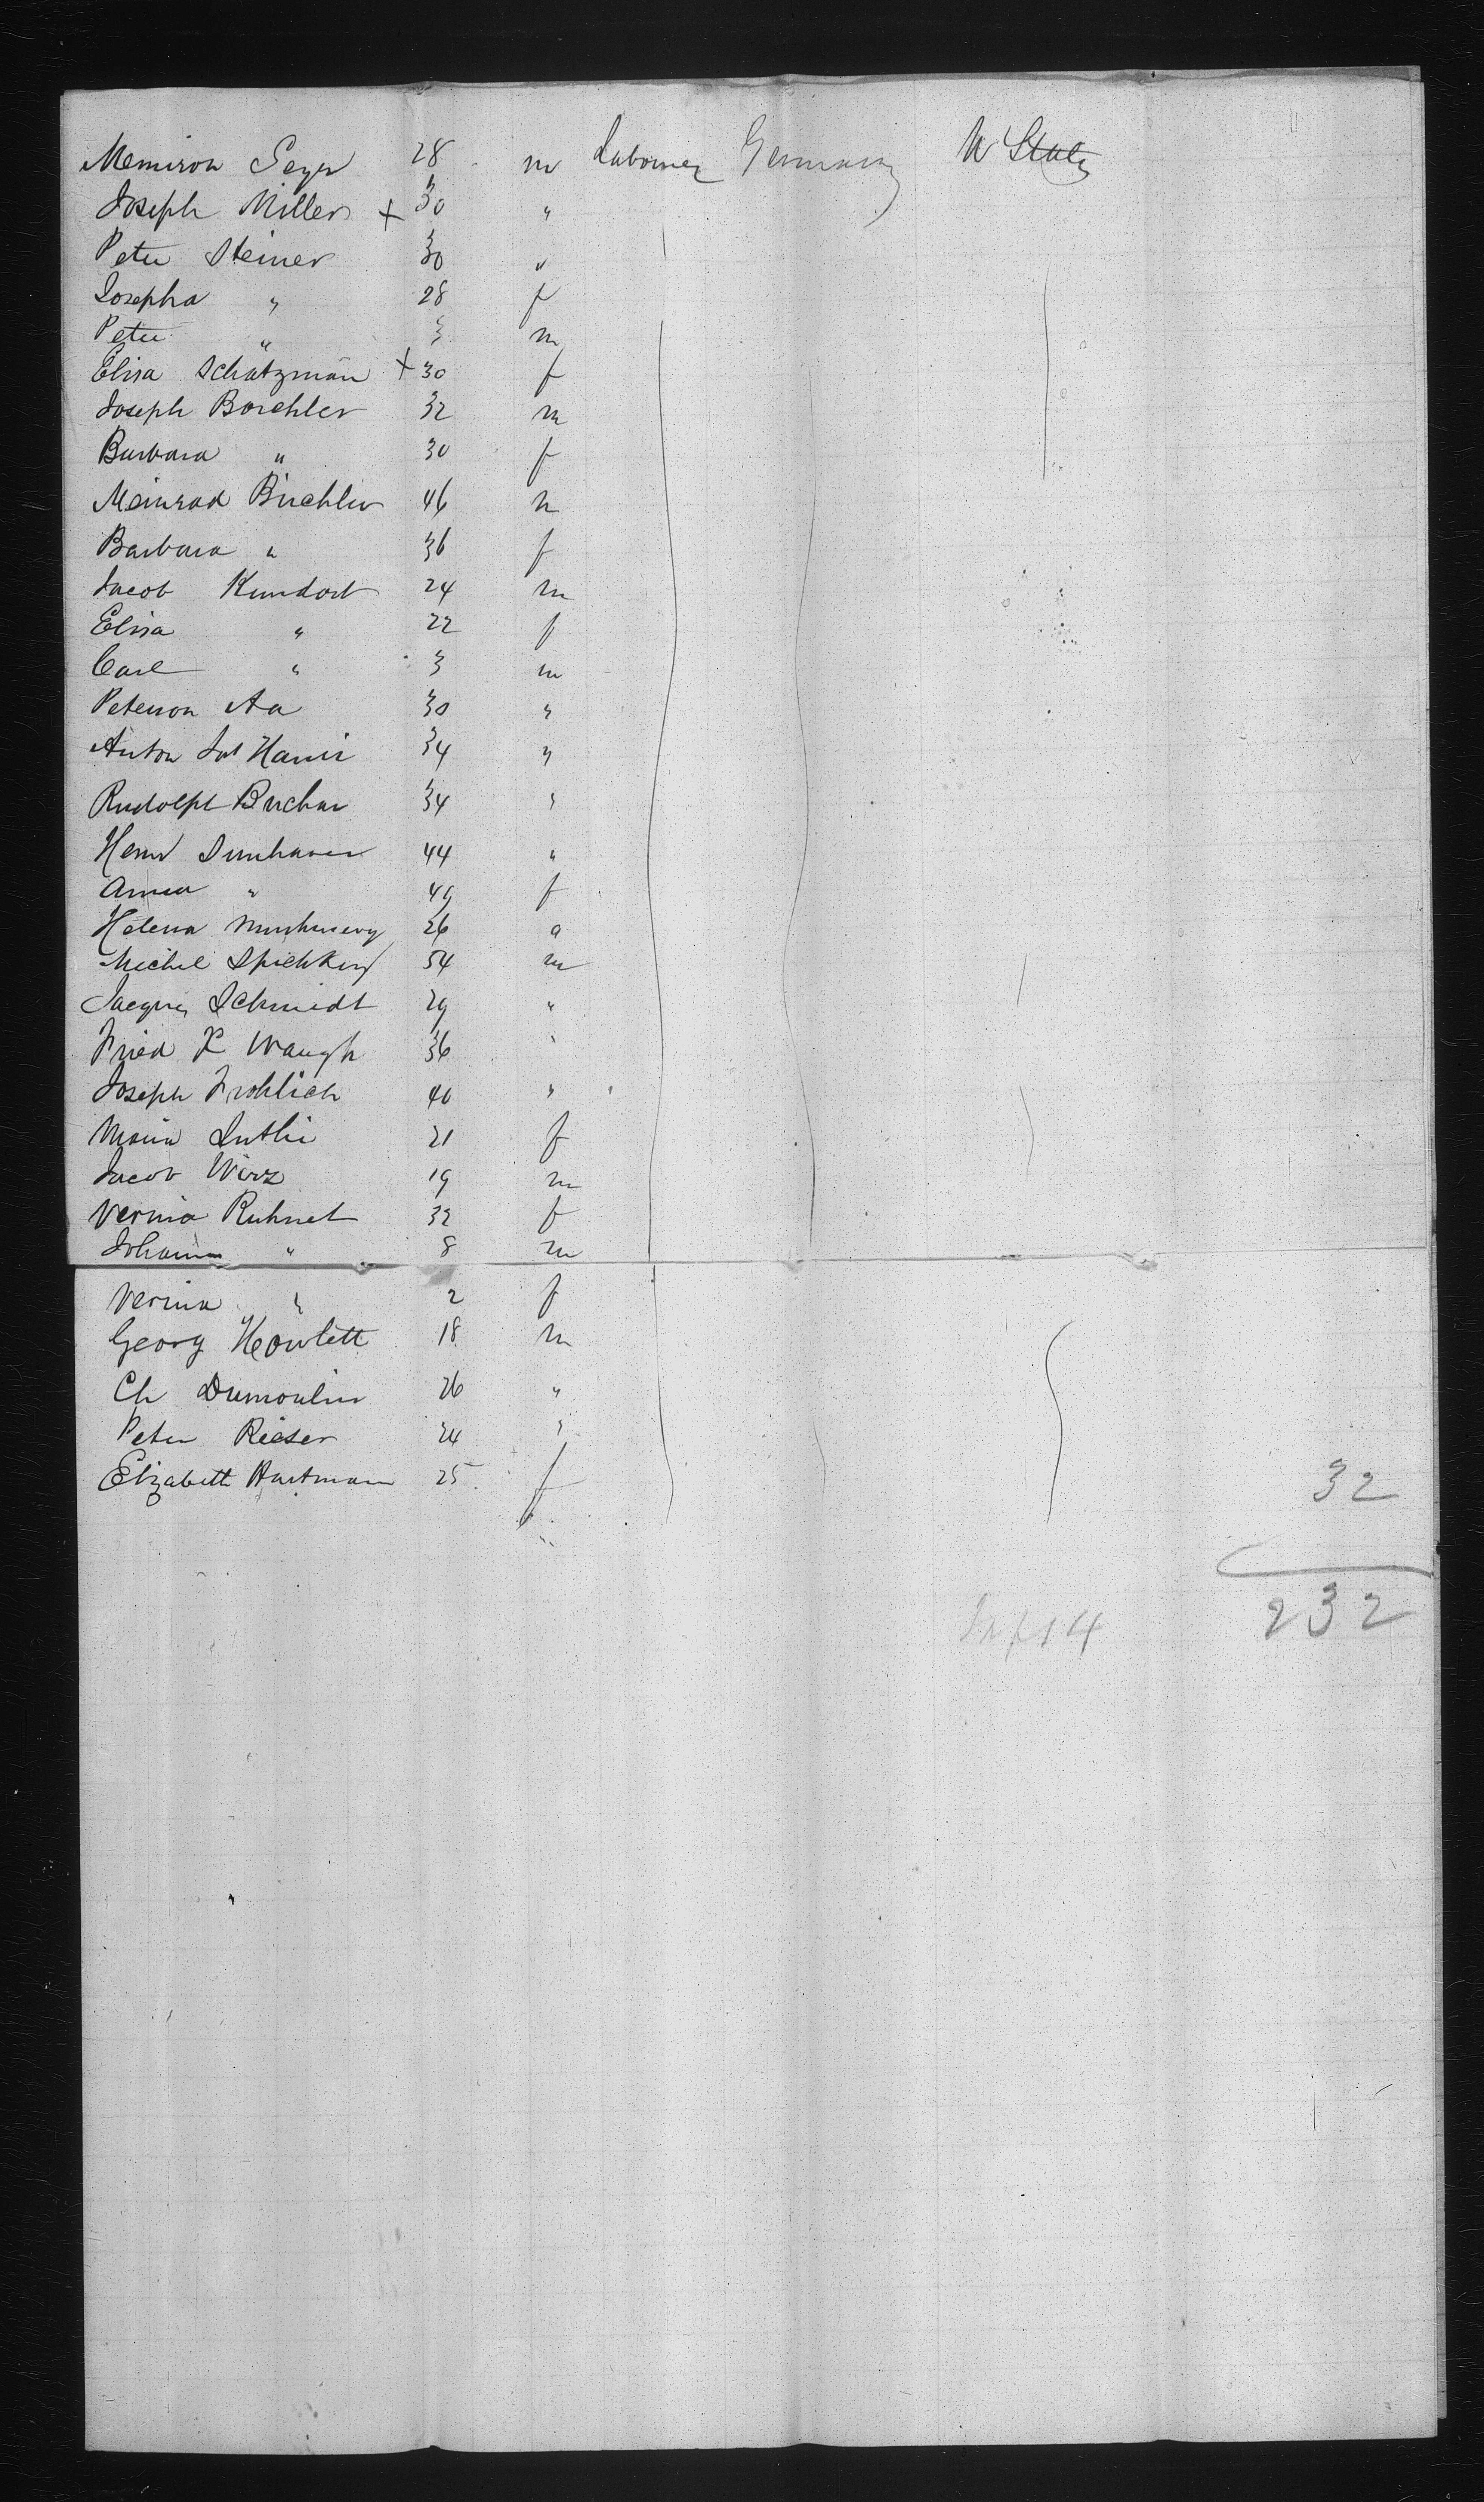 28 m Laborer Germany U States
Joseph Miller + 30 "
Peter Steiner 30 "
Josepha " 28 f
Peter " 3 m
Elisa Schätzman + 30 f
Joseph Borehler 32 m
Barbara " 30 f
Meinrad Birchler 46 m
Barbara " 36 f
Jacob Kundort 24 m
Elisa " 22 f
Carl " 3 m
Peterson Aa 30 "
Anton 34 "
Rudolph Bucher 34 "
44 "
Anna " 49 f
Helena 26 "
Michel 54 m
Jacques Schmidt 29 "
Fried X Waugh 36 "
Joseph Frohlich 40 "
Maria Luthi 21 f
Jacob Wirz 19 m
Verina Ruhnet 32 f
Johann " 8 m
Verina " 2 f
Georg Howlett 18 m
Ch Dumoulin 26 "
Peter Rieser 24 "
Elizabeth Hartmann 25 f 32
Inf 14 232